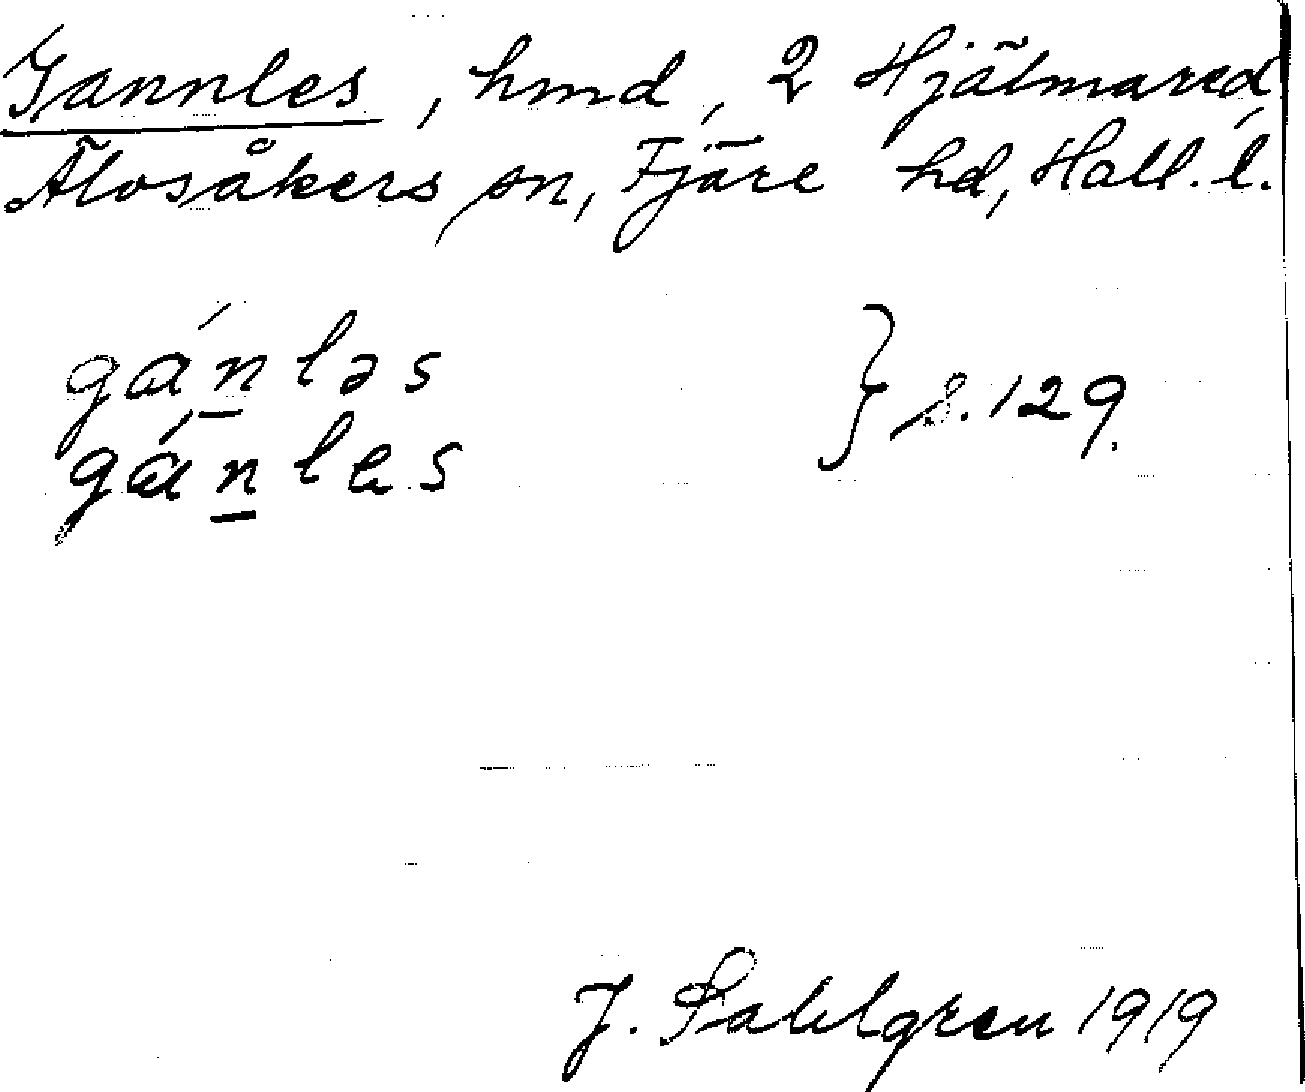 Gannles, hmd, 2 Hjälmared,
Älvsåkers sn, Fjäre hd, Hall. l.
gánləs
gánles } S. 129.
J. Sahlgren 1919